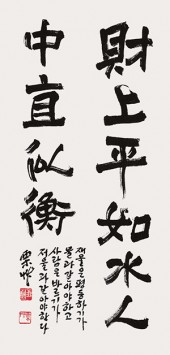 財上平如水人
中直似衡
재물은 평등하기가
물과 같아야 하고
사람은 바르기가
저울과 같아야 한다